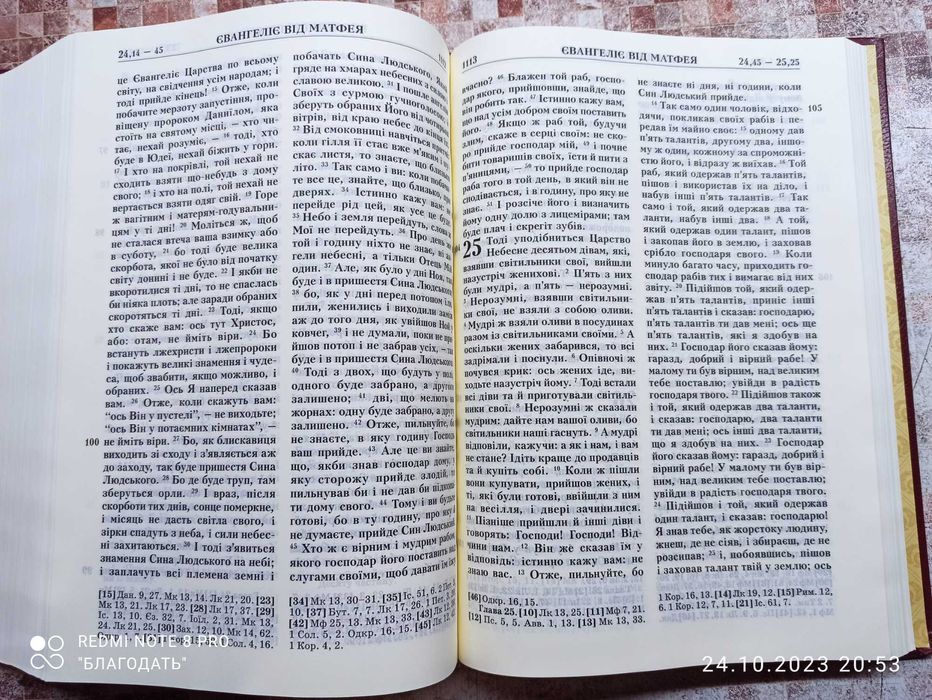 24,14 — 45
ЄВАНГЕЛІЄ ВІД МАТФЕЯ
це Євангеліє Царства по всьому
світу, на свідчення усім народам; і
тоді прийде кінець! 15 Отже, коли
побачите мерзоту запустіння, про-
віщену пророком Даниїлом, яка
стоїть на святому місці, — хто чи-
тає, нехай розуміє, — 16 тоді, хто
буде в Юдеї, нехай біжить у гори.
17 І хто на покрівлі, той нехай не
сходить взяти що-небудь з дому
свого; 18 і хто на полі, той нехай не
вертається взяти одяг свій. 19 Горе
ж вагітним і матерям-годувальни-
цям у ті дні! 20 Моліться ж, щоб
не сталася втеча ваша взимку або
в суботу, 21 бо тоді буде велика
скорбота, якої не було від початку
світу донині і не буде. 22 І якби не
вкоротилися ті дні, то не спаслась
би ніяка плоть; але заради обраних
скоротяться ті дні. 23 Тоді, якщо
хто скаже вам: ось тут Христос,
або: отам, не йміть віри. 24 Бо
встануть лжехристи і лжепророки
і покажуть великі знамення і чуде-
са, щоб звабити, якщо можливо, і
обраних. 25 Ось Я наперед сказав
вам. 26 Отже, коли скажуть вам:
“ось Він у пустелі”, — не виходьте;
“ось Він у потаємних кімнатах”, —
100 не йміть віри. 27 Бо, як блискавиця
виходить зі сходу і з’являється аж
до заходу, так буде пришестя Сина
Людського. 28 Бо де буде труп, там
зберуться орли. 29 І враз, після
скорботи тих днів, сонце померкне,
і місяць не дасть світла свого, і
зірки спадуть з неба, і сили небес-
ні захитаються. 30 І тоді з’явиться
знамення Сина Людського на небі;
і заплачуть всі племена земні і
[15] Дан. 9, 27. Мк 13, 14. Лк 21, 20. [23]
Мк 13, 21. Лк 17, 23. [28] Лк 17, 37. [29]
Іс. 13, 10. Єз. 32, 7. Іоїл. 2, 31. Мк 13,
24. Лк 21, 25. [30] Зах. 12, 10. Мк 14, 62.
побачать Сина Людського,
гряде на хмарах небесних з
славою великою. 31 І пошле
Своїх з сурмою гучноголосою,
зберуть обраних Його від чотирьох
вітрів, від краю небес до кінця
32 Від смоковниці навчіться притчі:
коли гілля її стає вже м’яким і
скає листя, то знаєте, що близько
літо. 33 Так само і ви: коли побачите
те все це, знайте, що близько, при
дверях. 34 Істинно кажу вам: не
перейде рід цей, як усе це буде.
35 Небо і земля перейдуть, слова ж
Мої не перейдуть. 36 Про день же
той і годину ніхто не знає, ні ан-
гели небесні, а тільки Отець Мій
один. 37 Але, як було у дні Ноя, так
буде і в пришестя Сина Людського:
38 бо, як у дні перед потопом їли,
пили, женились і виходили заміж
аж до того дня, як увійшов Ной у
ковчег, 39 і не думали, поки не при-
йшов потоп і не забрав усіх, — так
буде і в пришестя Сина Людського.
40 Тоді з двох, що будуть у полі,
одного буде забрано, а другого
залишено; 41 дві, що мелють на
жорнах: одну буде забрано, а другу
залишено. 42 Отже, пильнуйте, бо
не знаєте, в яку годину Господь
ваш прийде. 43 Але це ви знайте,
що, якби знав господар дому, у
яку сторожу прийде злодій, то
пильнував би і не дав би підкопа-
ти дому свого. 44 Тому і ви будьте
готові, бо в ту годину, про яку
не думаєте, прийде Син Людський.
45 Хто ж є вірним і мудрим рабом,
якого господар його поставив над
слугами своїми, щоб давати їм їжу
[34] Мк 13, 30–31. [35] Іс. 51, 6. 2 Пет. 3,
10. [37] Бут. 7, 7. Лк 17, 26. 1 Пет. 3,
[42] Мф 25, 13. Мк 13, 33. Лк
1 Сол. 5, 2. Одкр. 16, 15. [45] Лк
1 Кор. 4, 2.
1113
ЄВАНГЕЛІЄ ВІД МАТФЕЯ
24,45 — 25,25
вчасно? 46 Блажен той раб, госпо-
дар якого, прийшовши, знайде, що
він робить так. 47 Істинно кажу вам,
що над усім добром своїм поставить
його. 48 Якщо ж раб той, будучи
злим, скаже в серці своїм: не ско-
ро прийде господар мій, 49 і почне
бити товаришів своїх, їсти й пити з
п’яницями, — 50 то прийде господар
раба того в той день, в який він не
сподівається, і в годину, про яку не
знає. 51 І розсіче його і визначить
йому одну долю з лицемірами; там
буде плач і скрегіт зубів.
25 Тоді уподібниться Царство
Небесне десятьом дівам, які,
взявши світильники свої, вийшли
назустріч женихові. 2 П’ять з них
були мудрі, а п’ять — нерозумні.
3 Нерозумні, взявши світильни-
ки свої, не взяли з собою оливи.
4 Мудрі ж взяли оливи в посудинах
разом із світильниками своїми. 5 А
оскільки жених забарився, то всі
задрімали і поснули. 6 Опівночі ж
почувся крик: ось жених іде, ви-
ходьте назустріч йому. 7 Тоді встали
всі діви ті й приготували світильни-
ки свої. 8 Нерозумні ж сказали
мудрим: дайте нам вашої оливи, бо
світильники наші гаснуть. 9 А мудрі
відповіли, кажучи: а як і нам, і вам
не стане? Ідіть краще до продавців
та й купіть собі. 10 Коли ж пішли
вони купувати, прийшов жених, і
ті, які були готові, ввійшли з ним
на весілля, і двері зачинилися.
11 Пізніше прийшли й інші діви і
говорять: Господи! Господи! Від-
чини нам. 12 Він же сказав їм у
відповідь: істинно кажу вам: не
знаю вас. 13 Отже, пильнуйте, бо
[46] Одкр. 16, 15.
Глава 25. [10] Лк 13, 25. [11] Мф 7, 21.
[12] Пс. 5, 5. Авв. 1, 13. [13] Мк 13, 33.
не знаєте ні дня, ні години, коли
Син Людський прийде.
14 Так само один чоловік, відхо- 105
дячи, покликав своїх рабів і пе-
редав їм майно своє: 15 одному дав
п’ять талантів, другому два, іншо-
му ж один, кожному за спроможні-
стю його, і відразу ж виїхав. 16 Той
раб, який одержав п’ять талантів,
пішов і використав їх на діло, і
набув інші п’ять талантів. 17 Так
само і той, який одержав два та-
ланти, набув інші два. 18 А той,
який одержав один талант, пішов
і закопав його в землю, і заховав
срібло господаря свого. 19 Коли
минуло багато часу, приходить го-
сподар рабів тих і вимагає від них
звіту. 20 Підійшов той, який одер-
жав п’ять талантів, приніс інші
п’ять талантів і сказав: господарю,
п’ять талантів ти дав мені; ось інші
п’ять талантів, які я здобув на
них. 21 Господар його сказав йому:
гаразд, добрий і вірний рабе! У
малому ти був вірним, над великим
тебе поставлю; увійди в радість
господаря твого. 22 Підійшов також
і той, який одержав два таланти,
і сказав: господарю, два таланти
ти дав мені; ось інші два таланти,
що я здобув на них. 23 Господар
його сказав йому: гаразд, добрий і
вірний рабе! У малому ти був вір-
ним, над великим тебе поставлю;
увійди в радість господаря твого.
24 Підійшов і той, який одержав
один талант, і сказав: господарю!
Я знав тебе, як жорстоку людину,
жнеш, де не сіяв, і збираєш, де не
розсипав; 25 і, побоявшись, пішов
і заховав талант твій у землю; ось
1 Кор. 16, 13. [14] Лк 19, 12. [15] Рим. 12,
6. 1 Кор. 12, 7, 11. [21] Іс. 61, 7.
REDMI NOTE 8 PRO
"БЛАГОДАТЬ"
24.10.2023 20:53